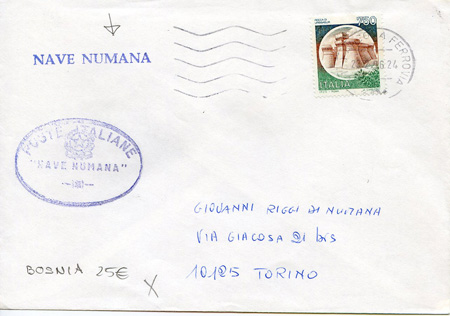 NAVE NUMANA
750
ITALIA
FERROVIA
POSTE ITALIANE
"NAVE NUMANA"
GIOVANNI RIGGI DI NUMANA
VIA GIACOSA 21 bis
10125 TORINO
BOSNIA 25€
X